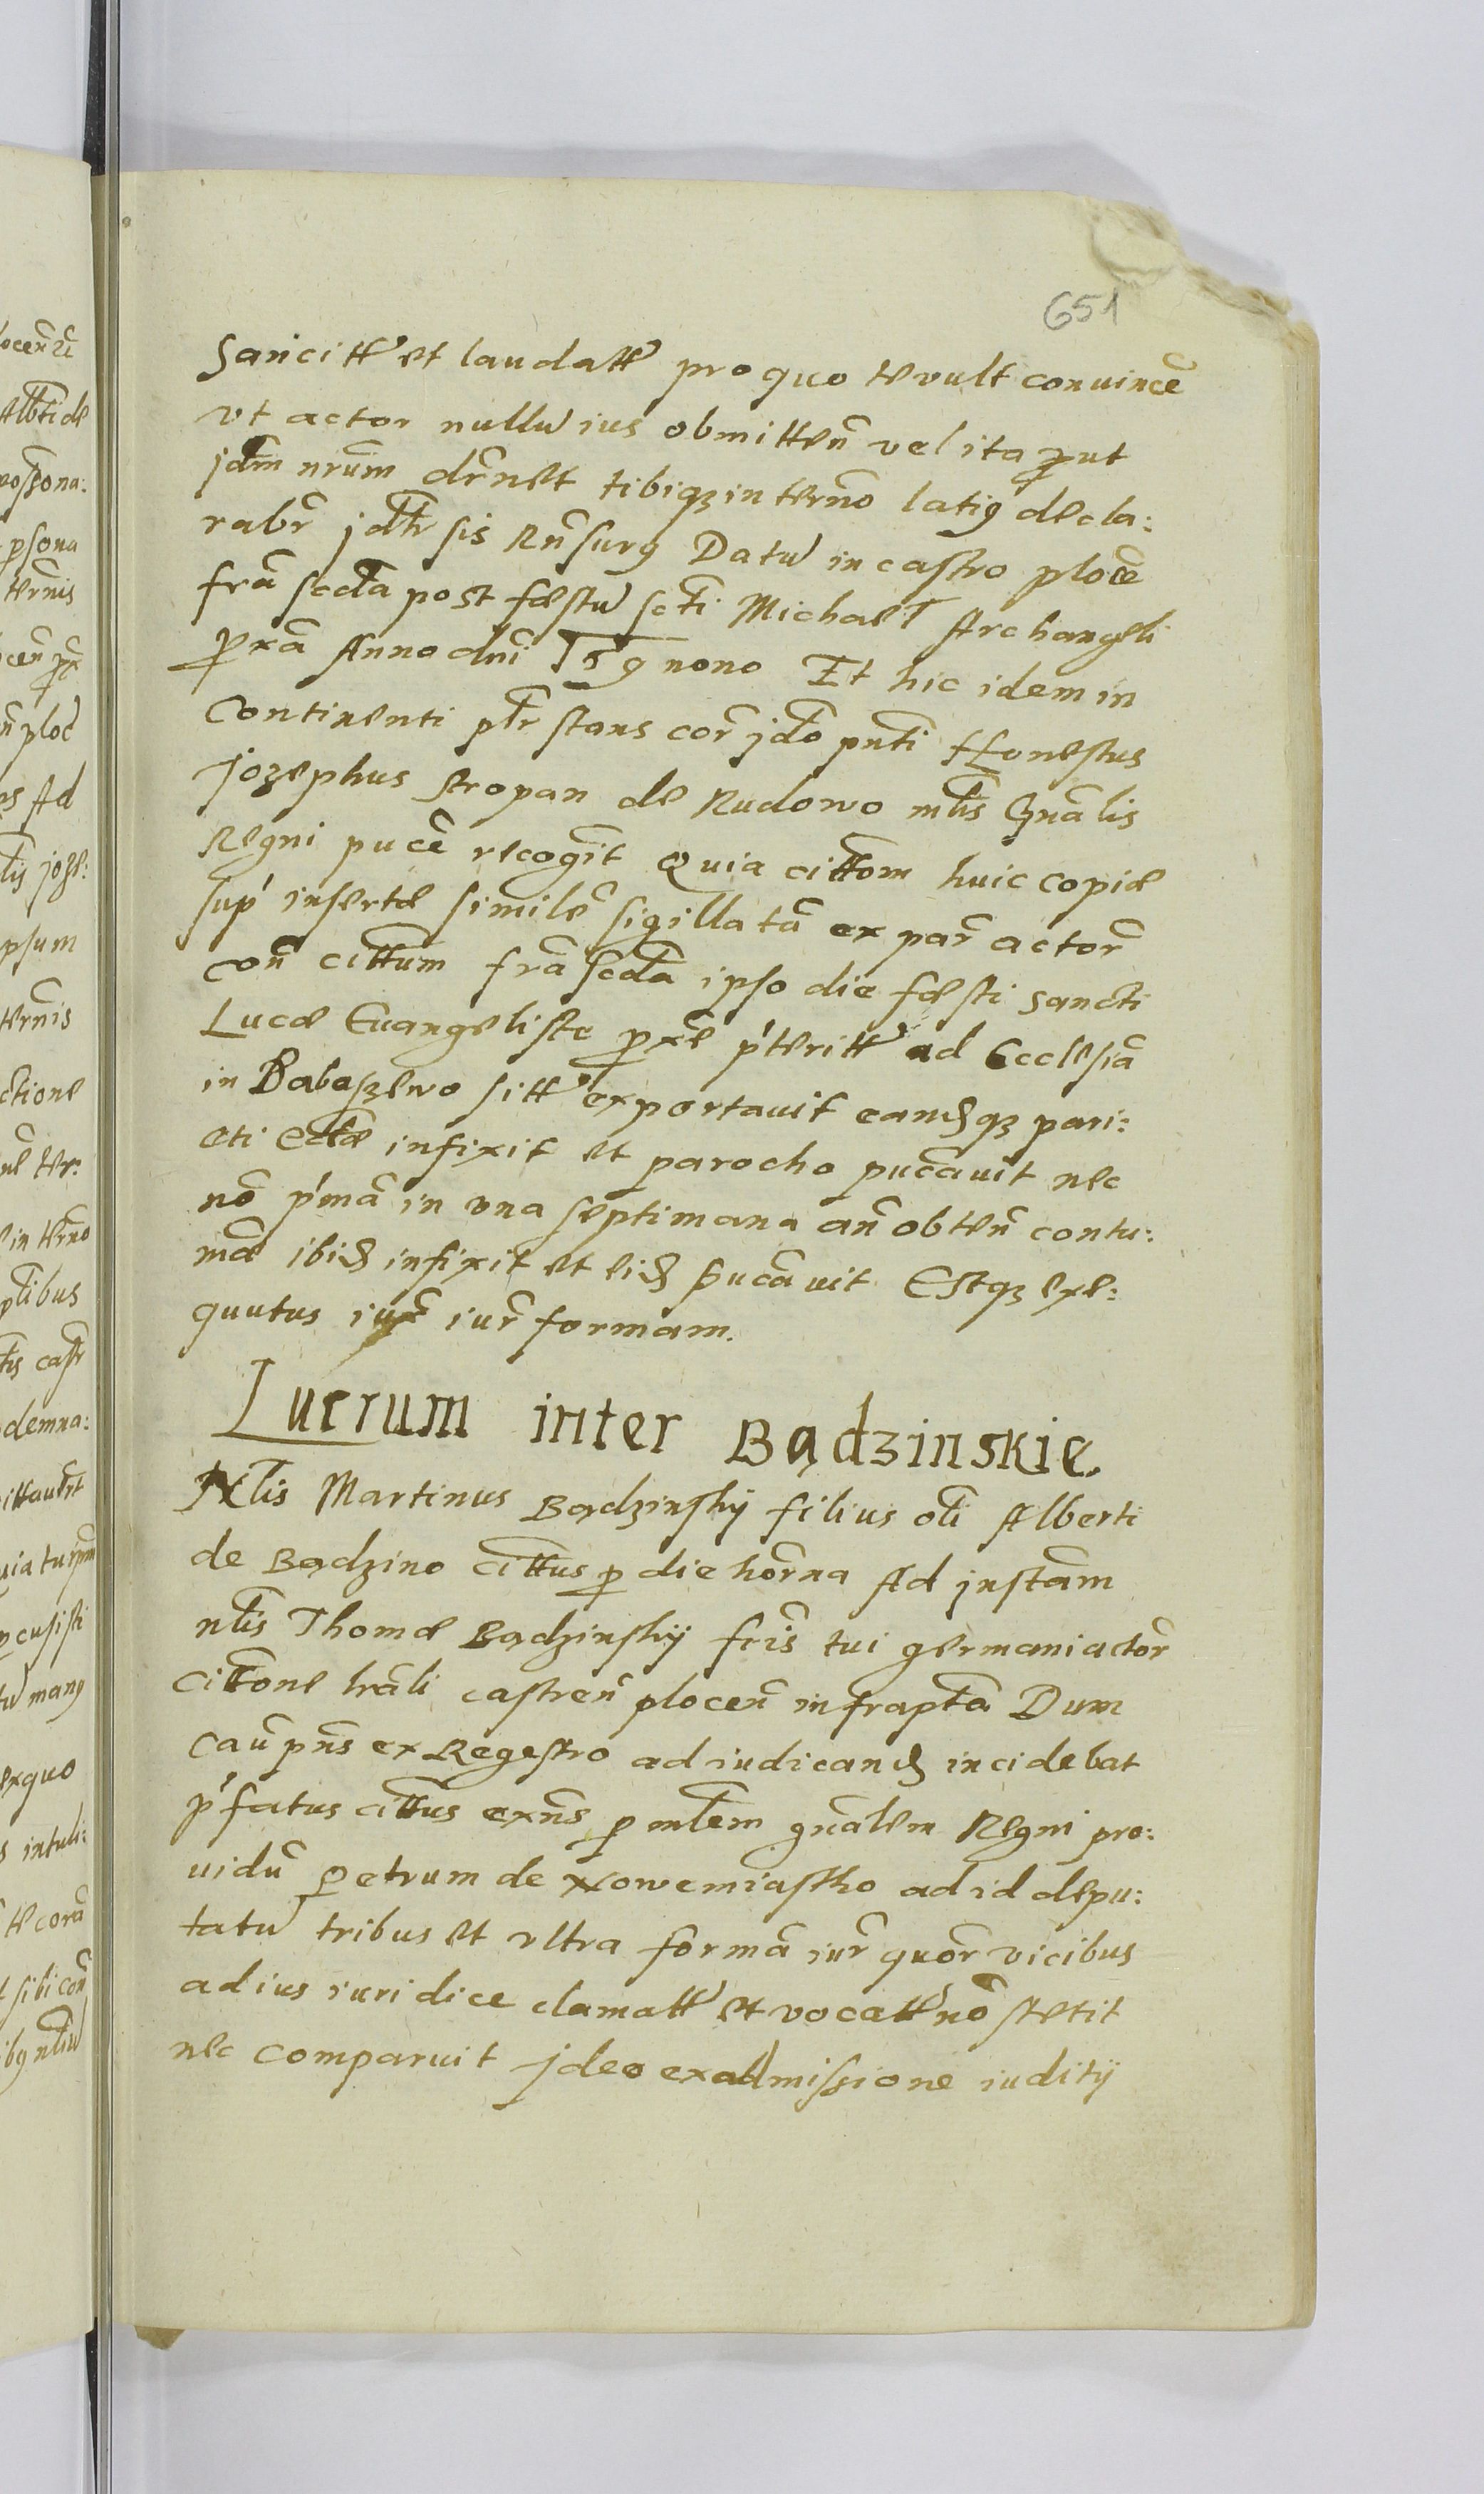 651
Sancitt et laudatt pro quo te vult conuincē
vt actor nullū ius obmitten̄ vel ita ꝓut
jdm̄ nrūm drn̄et tibiqꝫ in tern̄o latiꝰ decla:
rabr̄ jdtr̄ sis Rn̄surꝰ Datū in castro plocē
frā scdā post festū scti Michael Archangeli
ꝓxa Anno dni nono Et hic idem in
Continenti ptr̄ stans cor̄ jdo pn̄ti Honestus
Jozephus stropan de Rudowo mlis Gnālis
Regni pucē recogīt Quia cittom̄ huic copiæ
sup insertæ similē sigillatā ex par̄ actor̄
con̄ cittum̄ frā scdā ipso die festi Sancti
Lucæ Euangeliste ꝓxe p'teritt ad Ecclesiā
in Babaszewo sitt exportauit eandqꝫ pari:
eti Ecclæ infixit et parocho pucāuit nec
nō p'mā in vna septimana an̄ obten̄ contu:
mā ibid infixit et eid pucāuit Estqꝫ exe:
quutus iux̄ iur̄ formam.
Lucrum inter Bądzinskie.
Nlis Martinus Bądzinskij filius oli Alberti
de Bądzino cittus ꝑ die horna Ad jnstām
nlis Thomæ Bądzinskij fris tui germani actor̄
Cittone lrāli castren̄ plocen̄ infrapta Dum
Cau pn̄s ex Regestro ad iudicand incidebat
p'fatus cittus exn̄s ꝑ mlem gnālem Regni pro:
uidū Petrum de Nowemiastho ad id depu:
tatū tribus et vltra formā iur̄ quor̄ vicibus
ad ius iuridice clamatt et vocatt nō stetit
nec comparuit jdeo ex admissione iuditij